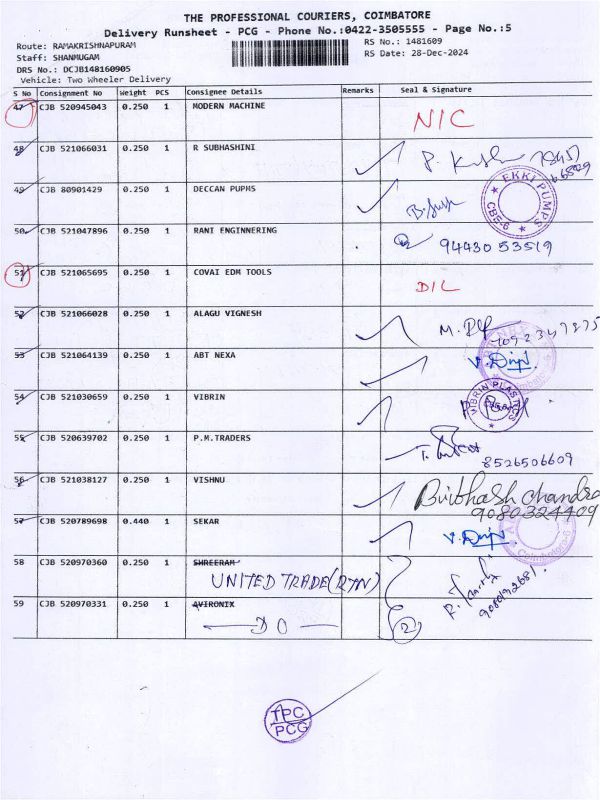 THE PROFESSIONAL COURIERS, COIMBATORE
Delivery Runsheet - PCG - Phone No.:0422-3505555 - Page No.:5
Route: RAMAKRISHNAPURAM
RS No.: 1481609
Staff: SHANMUGAM
RS Date: 28-Dec-2024
DRS No.: DCJB148160905
Vehicle: Two Wheeler Delivery
S No Consignment No Weight PCS Consignee Details Remarks Seal & Signature
47 CJB 520945043 0.250 1 MODERN MACHINE NIC
48 CJB 521066031 0.250 1 R SUBHASHINI
49 CJB 80901429 0.250 1 DECCAN PUPMS B.
EKKI PUMPS CBE-6
50 CJB 521047896 0.250 1 RANI ENGINNERING 94430 53519
51 CJB 521065695 0.250 1 COVAI EDM TOOLS DIL
52 CJB 521066028 0.250 1 ALAGU VIGNESH M.
53 CJB 521064139 0.250 1 ABT NEXA V.
54 CJB 521030659 0.250 1 VIBRIN
VIBRIN PLASTICS
55 CJB 520639702 0.250 1 P.M.TRADERS
8526506609
56 CJB 521038127 0.250 1 VISHNU Bibhash chandra
9080324409
57 CJB 520789698 0.440 1 SEKAR V.
Coimbatore-6
58 CJB 520970360 0.250 1 SHREERAM
UNITED TRADE(RTN)
59 CJB 520970331 0.250 1 AVIRONIX
DO 2
TPC
PCG